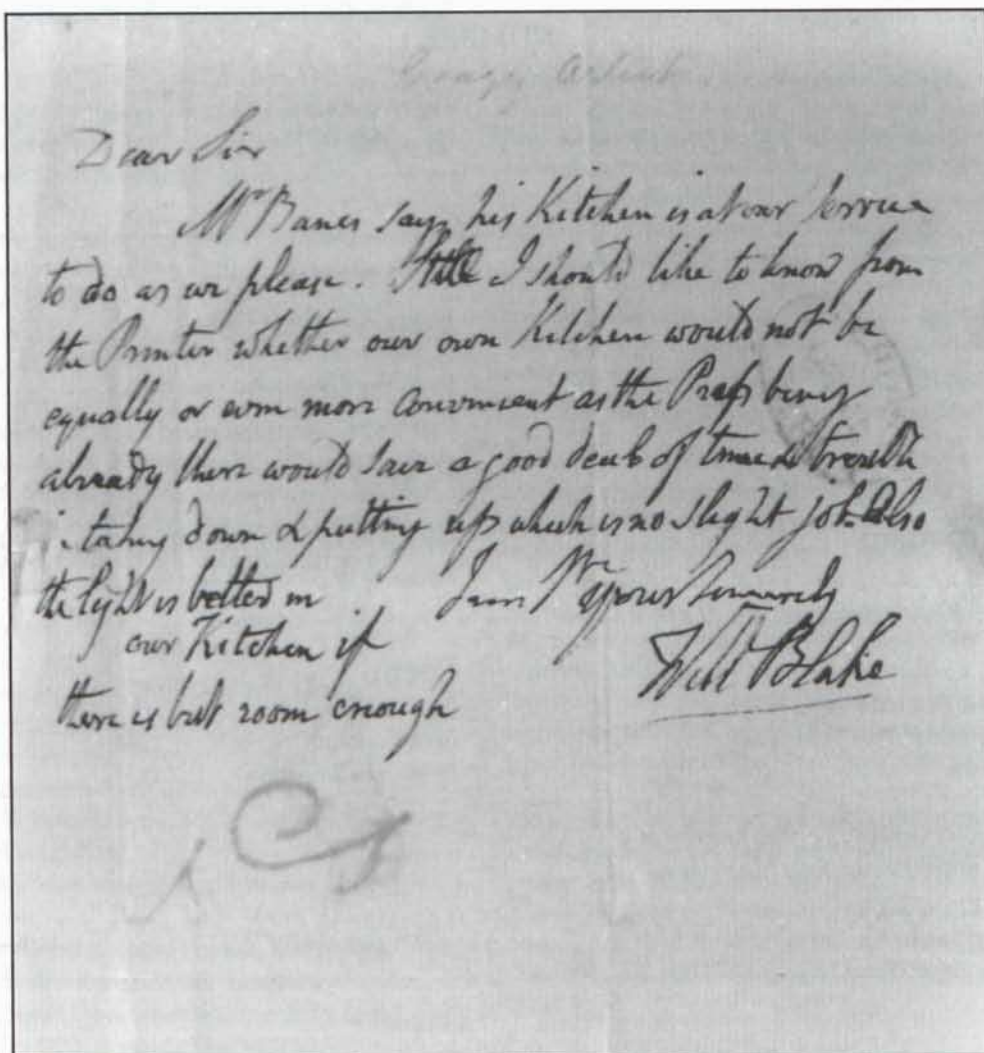 Dear Sir
Mr Banes says his Kitchen is at our Service
to do as we please. Still I should like to know from
the Printer whether our own Kitchen would not be
equally or even more convenient as the Press being
already there would save a good deal of time & trouble
in taking down & putting up which is no slight job. Also
the light is better in
our Kitchen if
there is but room enough
I am Yours Sincerely
Will Blake